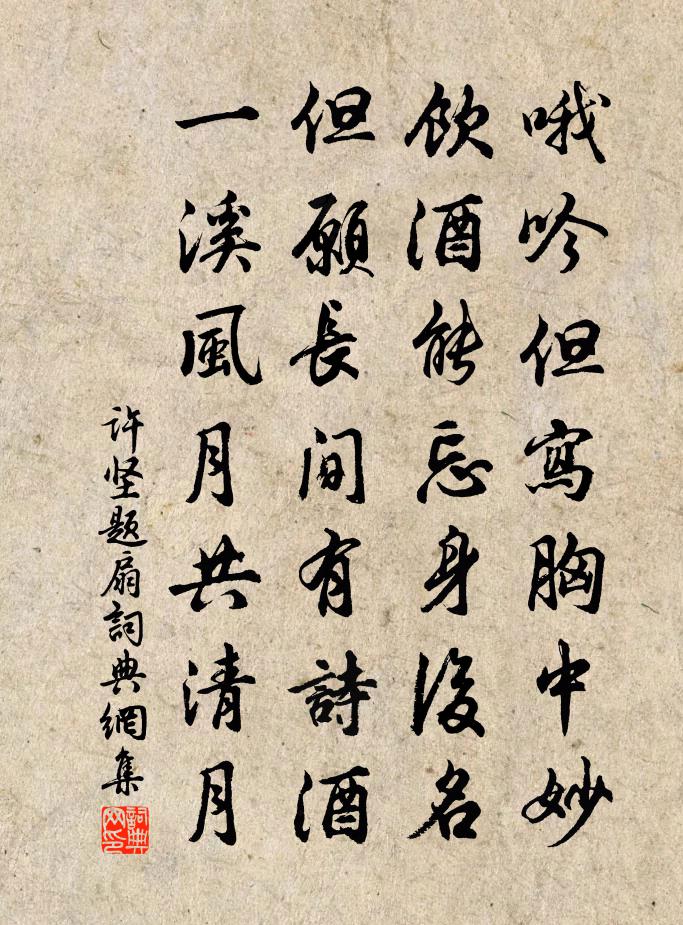 哦吟但寫胸中妙
飲酒能忘身後名
但願長閒有詩酒
一溪風月共清月
许坚题扇詞典網集
詞典网印